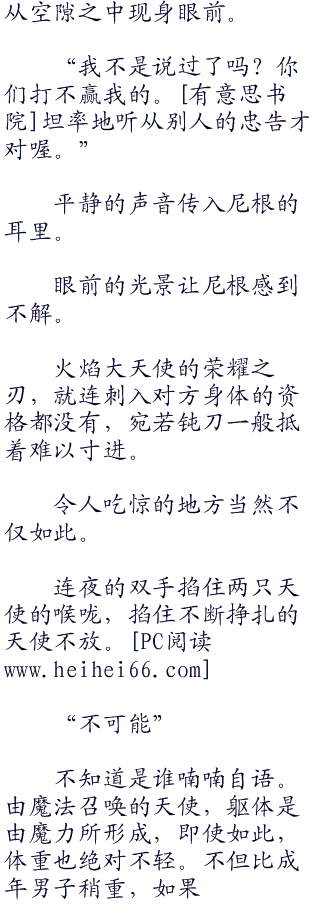 从空隙之中现身眼前。
“我不是说过了吗？你
们打不赢我的。[有意思书
院]坦率地听从别人的忠告才
对喔。”
平静的声音传入尼根的
耳里。
眼前的光景让尼根感到
不解。
火焰大天使的荣耀之
刃，就连刺入对方身体的资
格都没有，宛若钝刀一般抵
着难以寸进。
令人吃惊的地方当然不
仅如此。
连夜的双手掐住两只天
使的喉咙，掐住不断挣扎的
天使不放。[PC阅读
www.heihei66.com]
“不可能”
不知道是谁喃喃自语。
由魔法召唤的天使，躯体是
由魔力所形成，即使如此，
体重也绝对不轻。不但比成
年男子稍重，如果